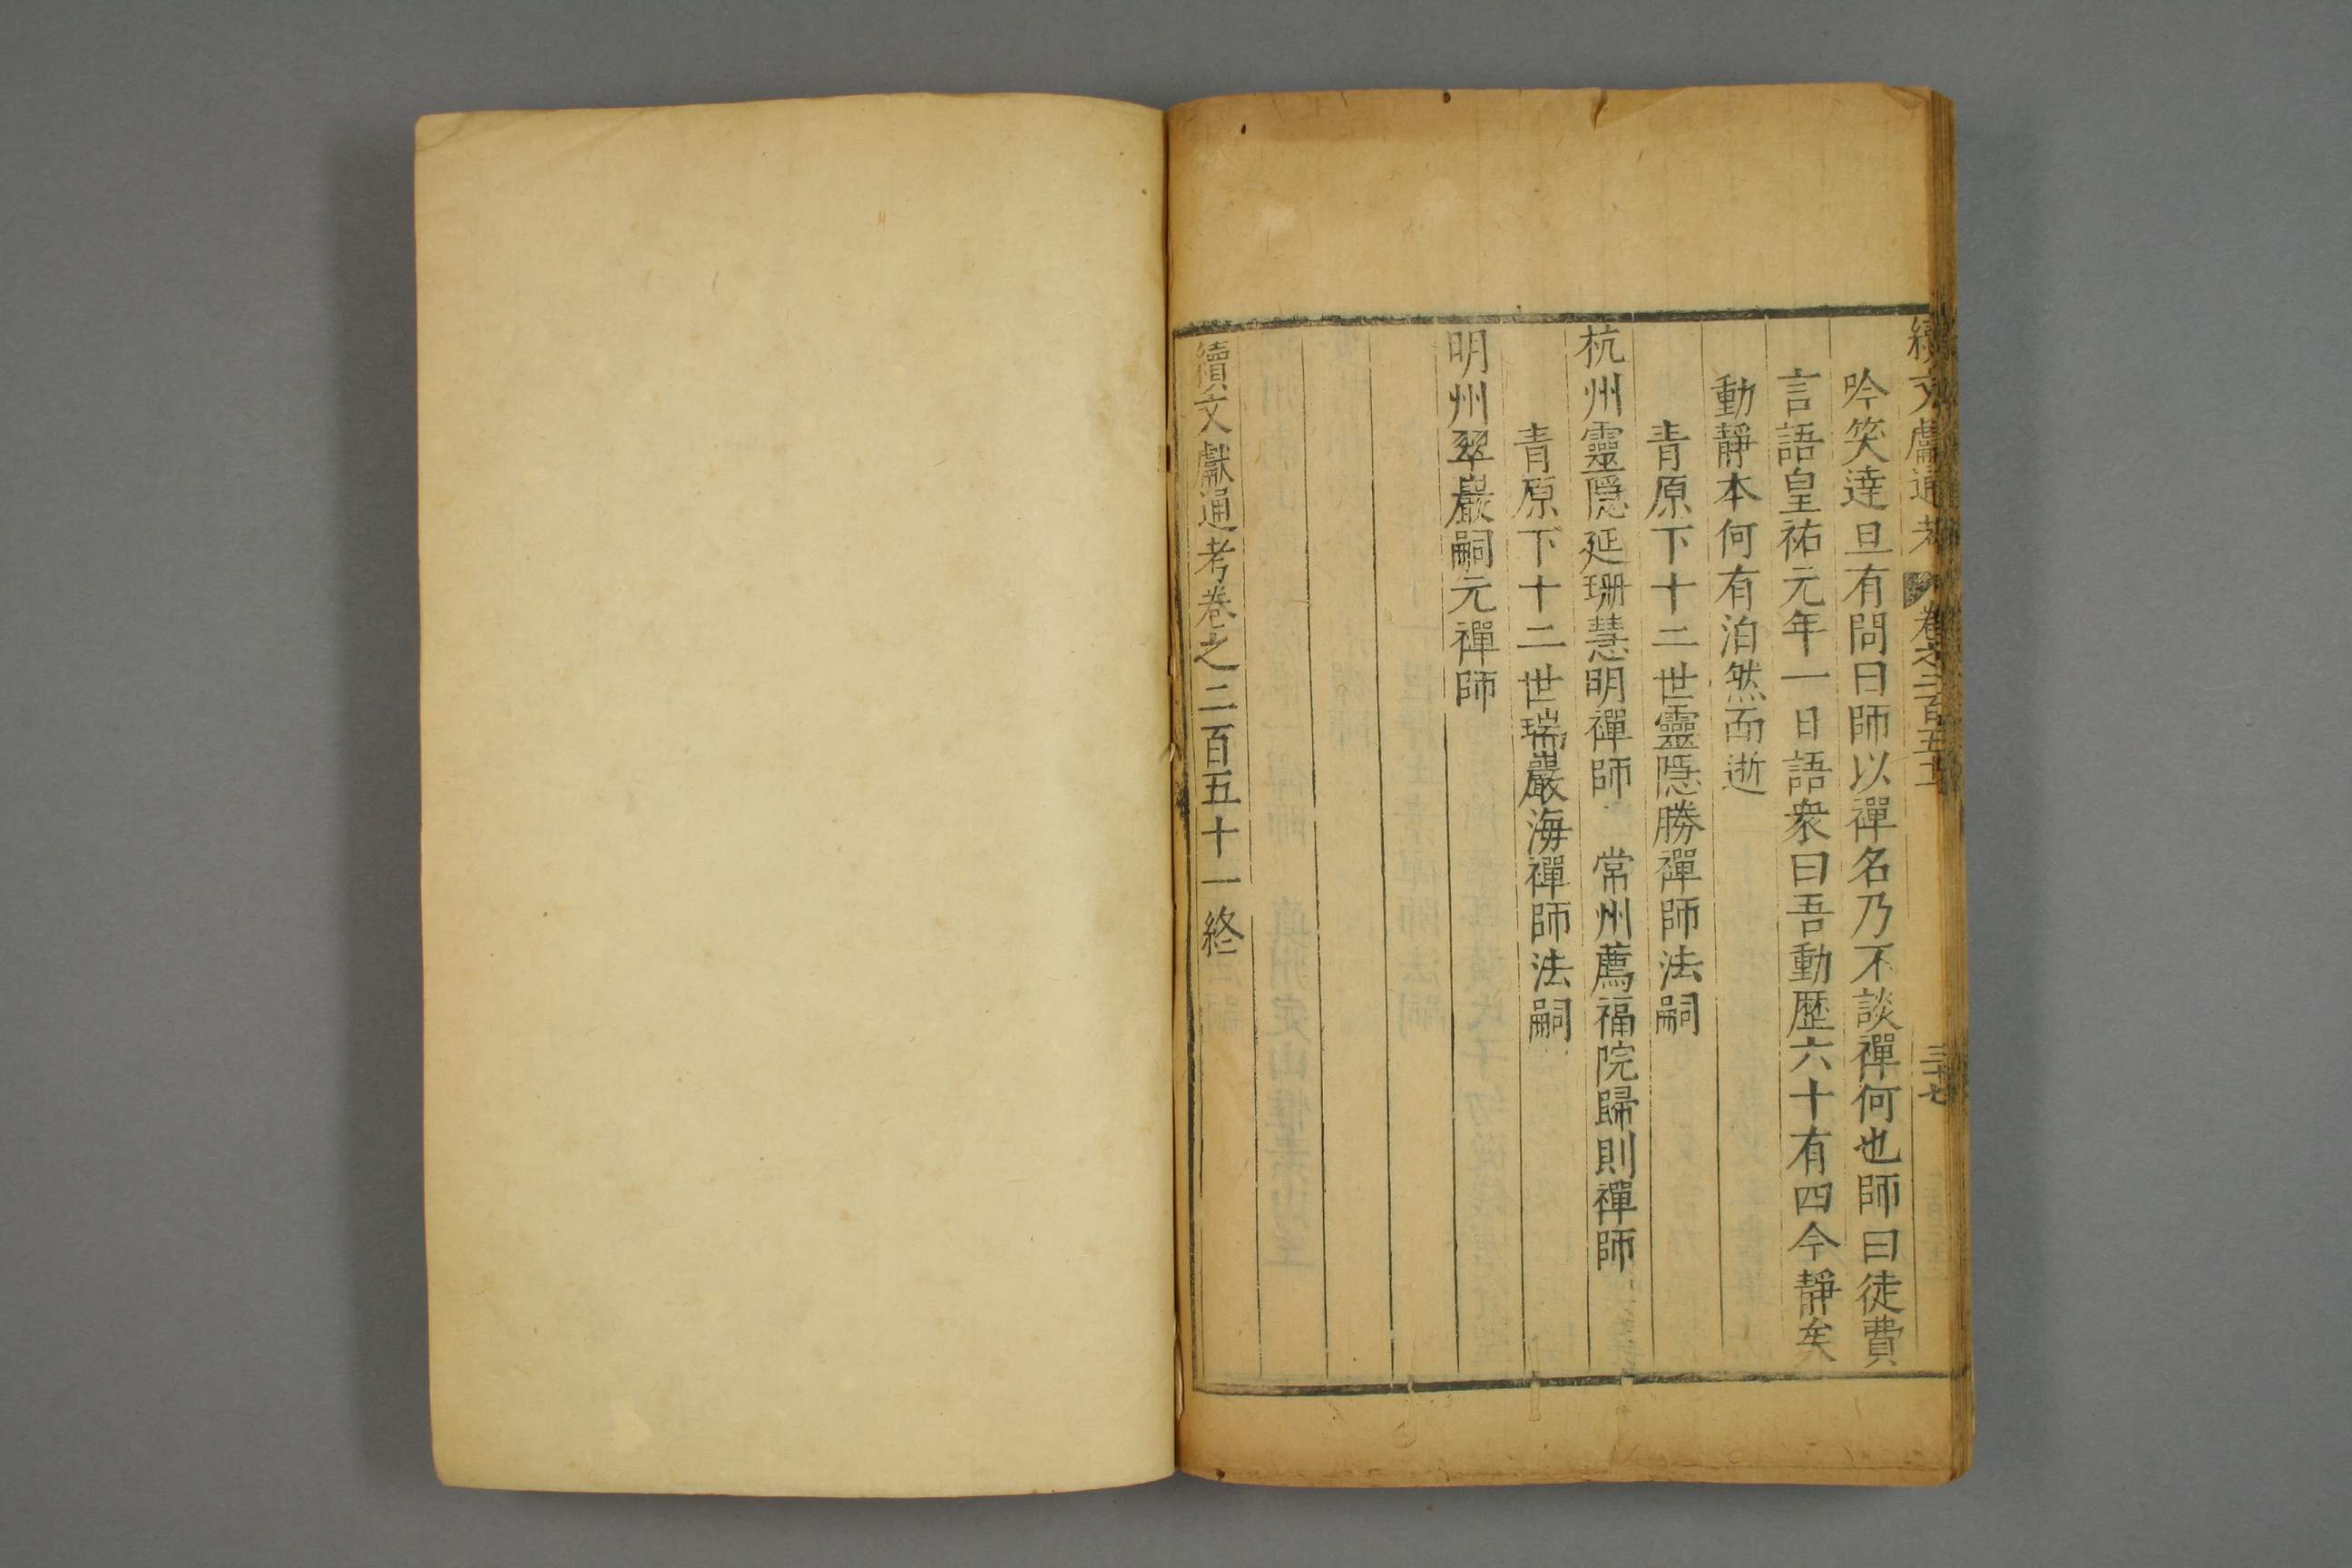 續文獻通考 卷之二百五十一 三十七
吟笑達旦有問曰師以禪名乃不談禪何也師曰徒費
言語皇祐元年一日語衆曰吾動歷六十有四今靜矣
動靜本何有泊然而逝
青原下十二世靈隱勝禪師法嗣
杭州靈隱延珊慧明禪師 常州薦福院歸則禪師
青原下十二世瑞巖海禪師法嗣
明州翠巖嗣元禪師
續文獻通考卷之二百五十一終